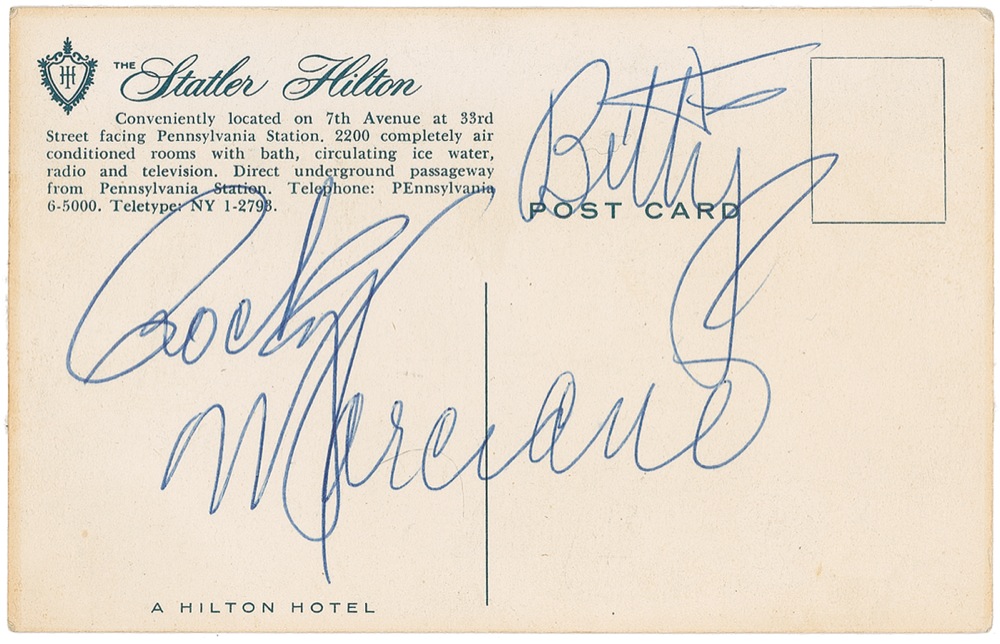 THE Statler Hilton
Conveniently located on 7th Avenue at 33rd
Street facing Pennsylvania Station. 2200 completely air
conditioned rooms with bath, circulating ice water,
radio and television. Direct underground passageway
from Pennsylvania Station. Telephone: PEnnsylvania
6-5000. Teletype: NY 1-2793.
POST CARD
Rocky
Marciano
A HILTON HOTEL